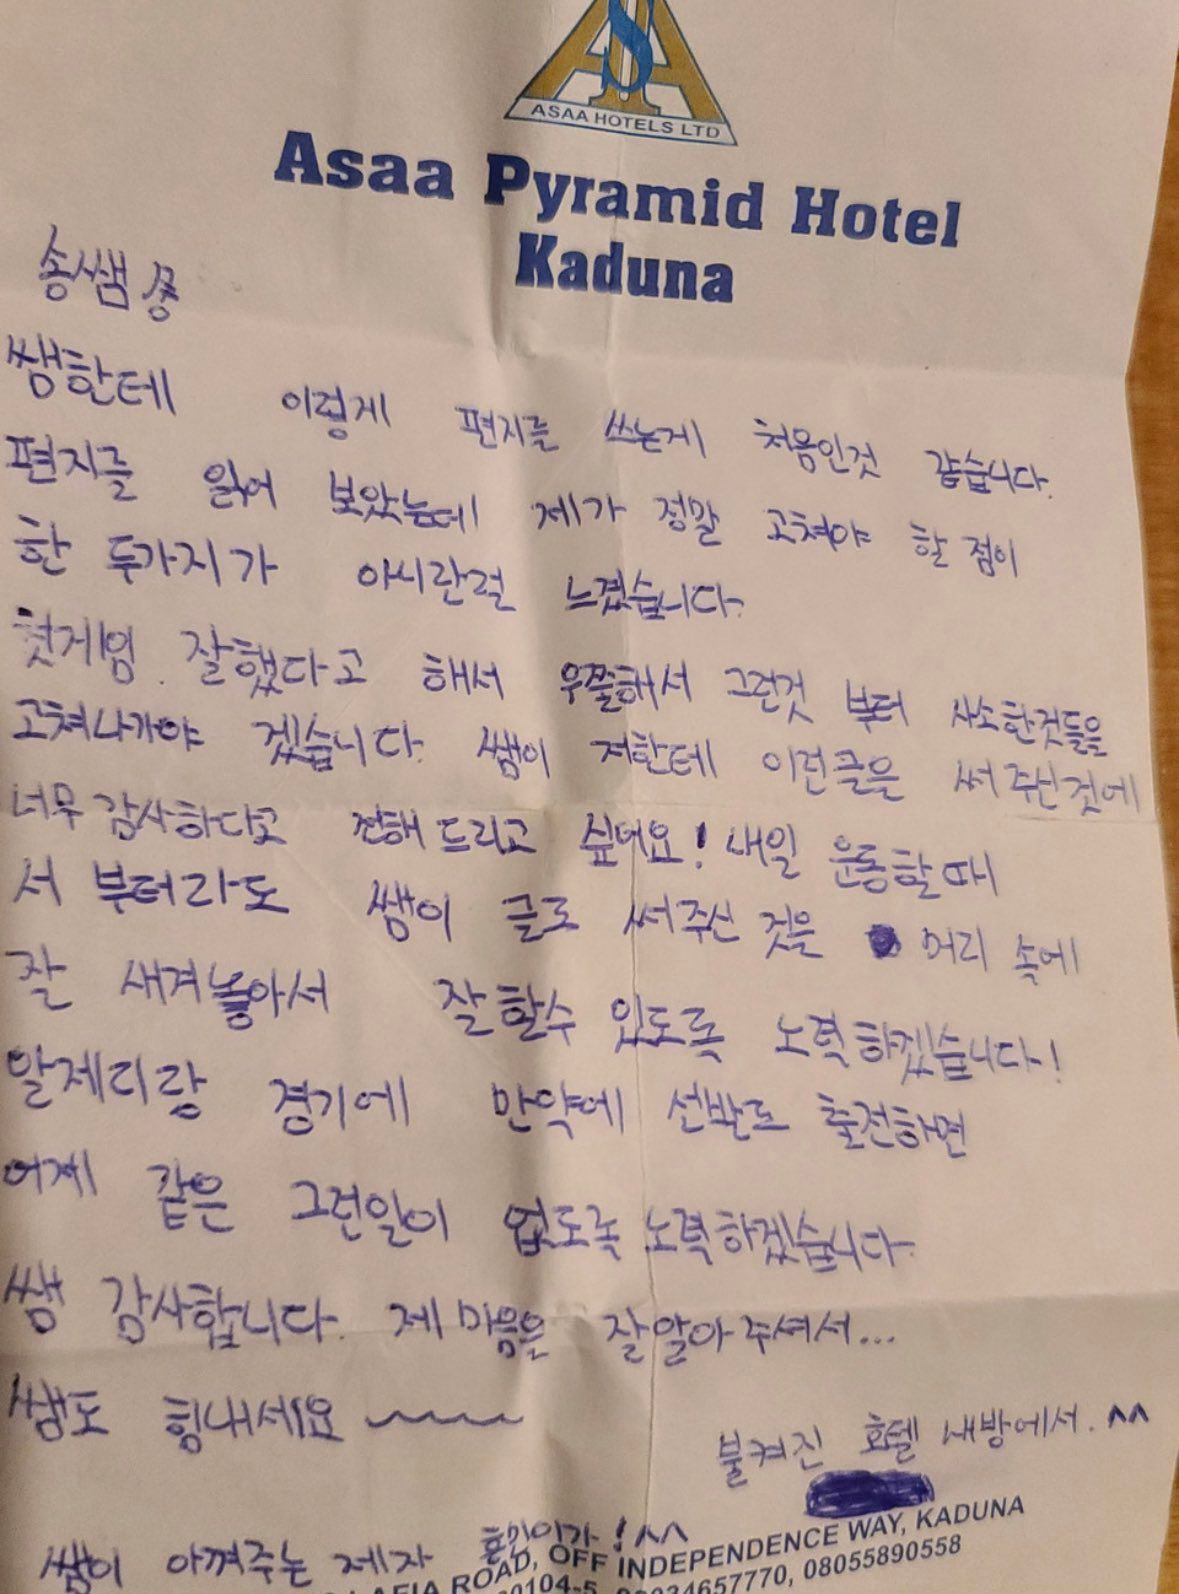 ASAA HOTELS LTD
Asaa Pyramid Hotel
Kaduna
송쌤
쌤한테 이렇게 편지를 쓰는게 처음인것 같습니다.
편지를 읽어 보았는데 제가 정말 고쳐야 할 점이
한 두가지가 아시란걸 느꼈습니다.
첫게임. 잘했다고 해서 우쭐해서 그런것 부터 사소한것들을
고쳐나가야 겠습니다. 쌤이 저한테 이런글을 써 주신것에
너무 감사하다고 전해 드리고 싶어요! 내일 운동할때
서 부터라도 쌤이 글로 써주신 것은 머리 속에
잘 새겨놓아서 잘할수 있도록 노력하겠습니다!
알제리랑 경기에 만약에 선발로 출전하면
어제 같은 그런일이 없도록 노력하겠습니다.
쌤 감사합니다. 제 마음은 잘알아 주셔서...
쌤도 힘내세요 ~~~~
불켜진 호텔 내방에서. ^^
쌤이 아껴주는 제자 흥민이가! ^^
ROAD, OFF INDEPENDENCE WAY, KADUNA
08055890558